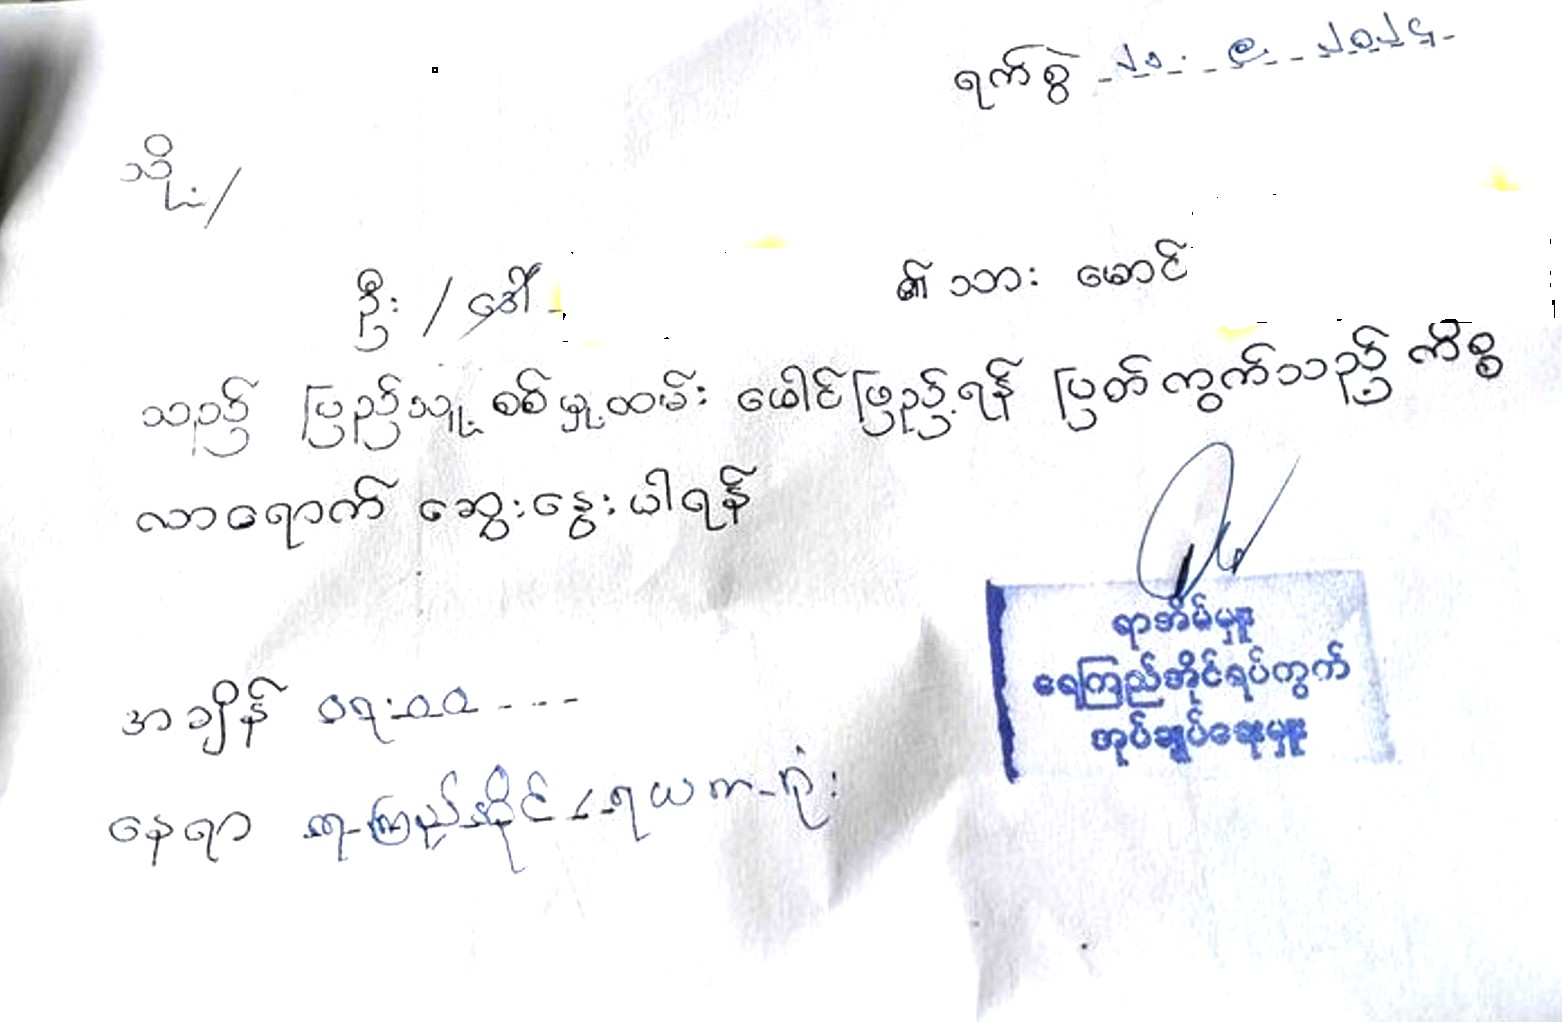 ရက်စွဲ ၂၁.၉.၂၀၂၄
သို့/
ဦး / ဒေါ် ၏သား မောင်
သည် ပြည်သူ့စစ်မှုထမ်း ခေါင်ဖြည့်ရန် ပြတ်ကွက်သည့် ကိစ္စ
လာရောက် ဆွေးနွေးပါရန်
ရာအိမ်မှူး
ရေကြည်အိုင်ရပ်ကွက်
အုပ်ချုပ်ရေးမှူး
အချိန် ၀၇:၀၀
နေရာ ရေကြည်အိုင် ရယက-ရုံး